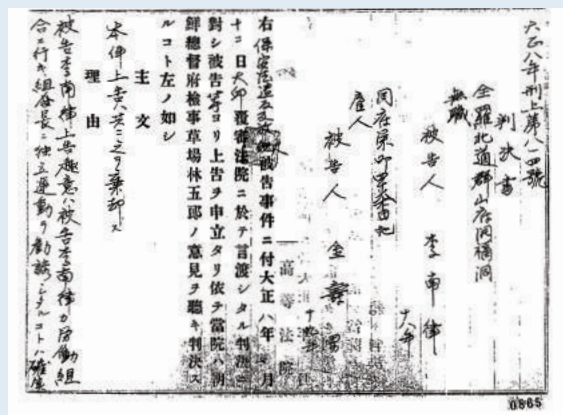 大正八年刑上第八一四號
判決書
全羅北道群山府
無職
被告人 李南律
十八年
同府
雇人
被告人 金
高等法院
右保安法違反被告事件ニ付大正八年 月
十二日大邱覆審法院ニ於テ言渡シタル判決ニ
對シ被告等ヨリ上告ヲ申立タリ依テ當院ハ朝
鮮總督府檢事草場林五郎ノ意見ヲ聽キ判決ス
ルコト左ノ如シ
主文
本件上告ハ共ニ之ヲ棄却ス
理由
被告李南律上告趣意ハ被告李南律カ勞働組
合ニ行キ組合長ニ獨立運動ヲ勸誘シタルコトハ確實
0865